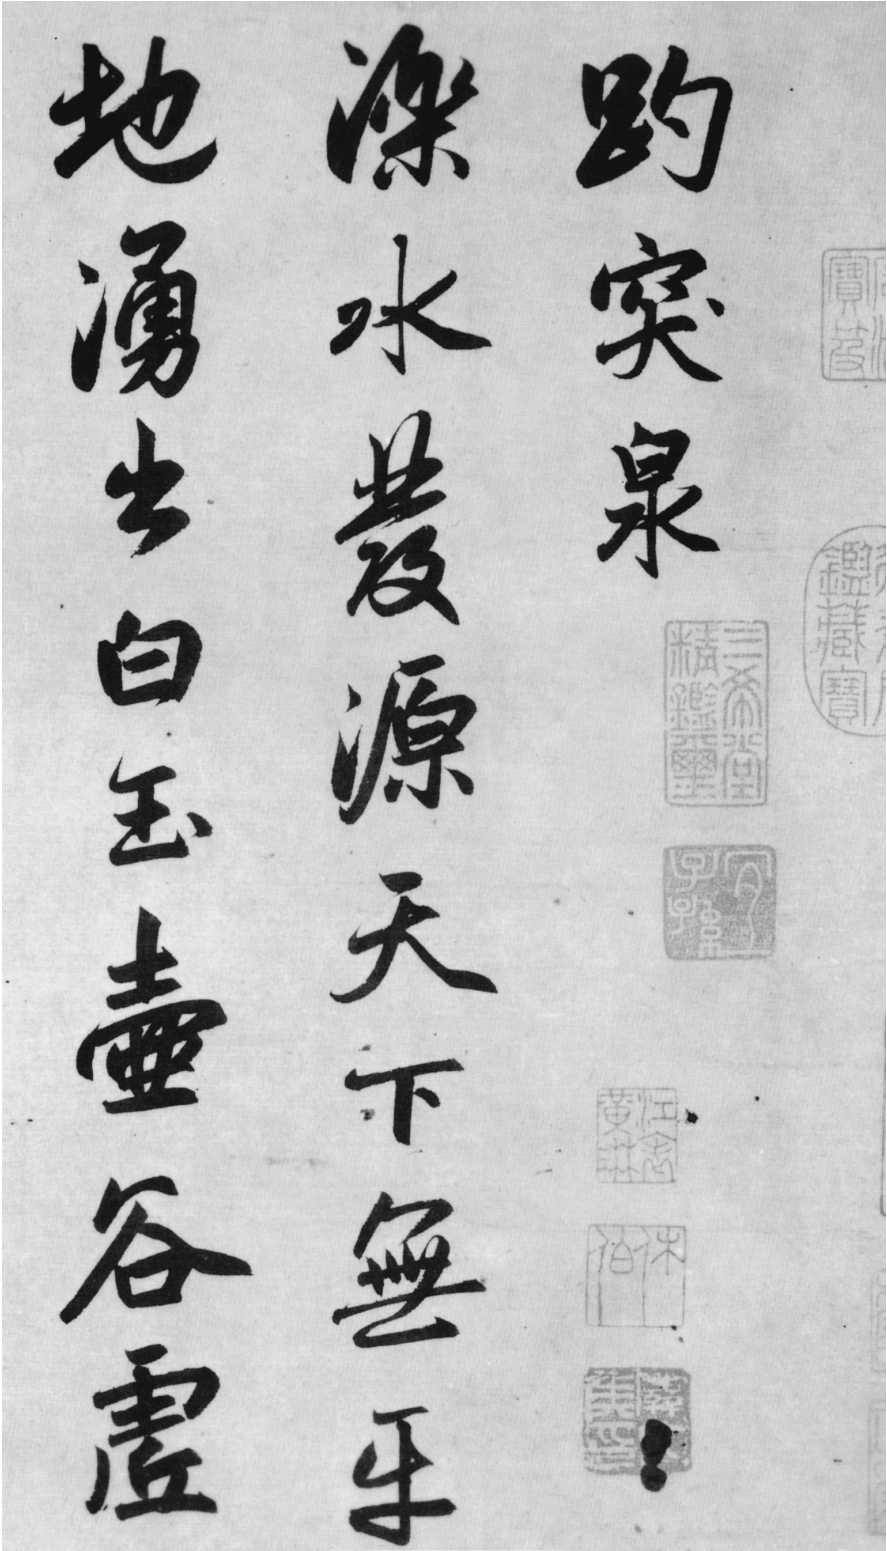 趵突泉
濼水發源天下無平
地湧出白玉壺谷虛
寶笈
鑑藏寶
三希堂
精鑑璽
宜
子孫
休伯